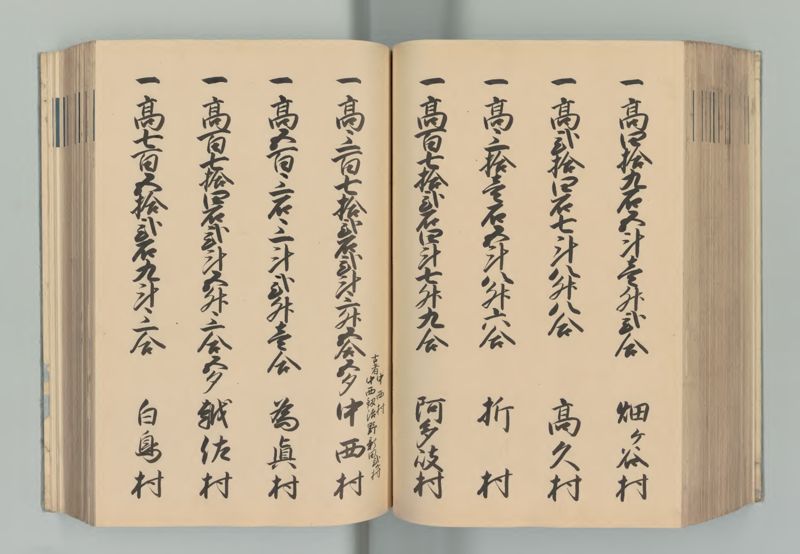 一 高四拾九石五斗壱升弐合 畑ケ谷村
一 高弐拾四石七斗八升八合 高久村
一 高三拾壱石五斗八升六合 折村
一 高百七拾弐石四斗七升九合 阿多岐村
一 高三百七拾弐石弐斗三升六合五夕 中西村
古者 中西村
中西村
一 高五百三石三斗弐升壱合 為真村
一 高百七拾四石弐斗五升三合五夕 越佐村
一 高七百五拾弐石九斗三合 白鳥村